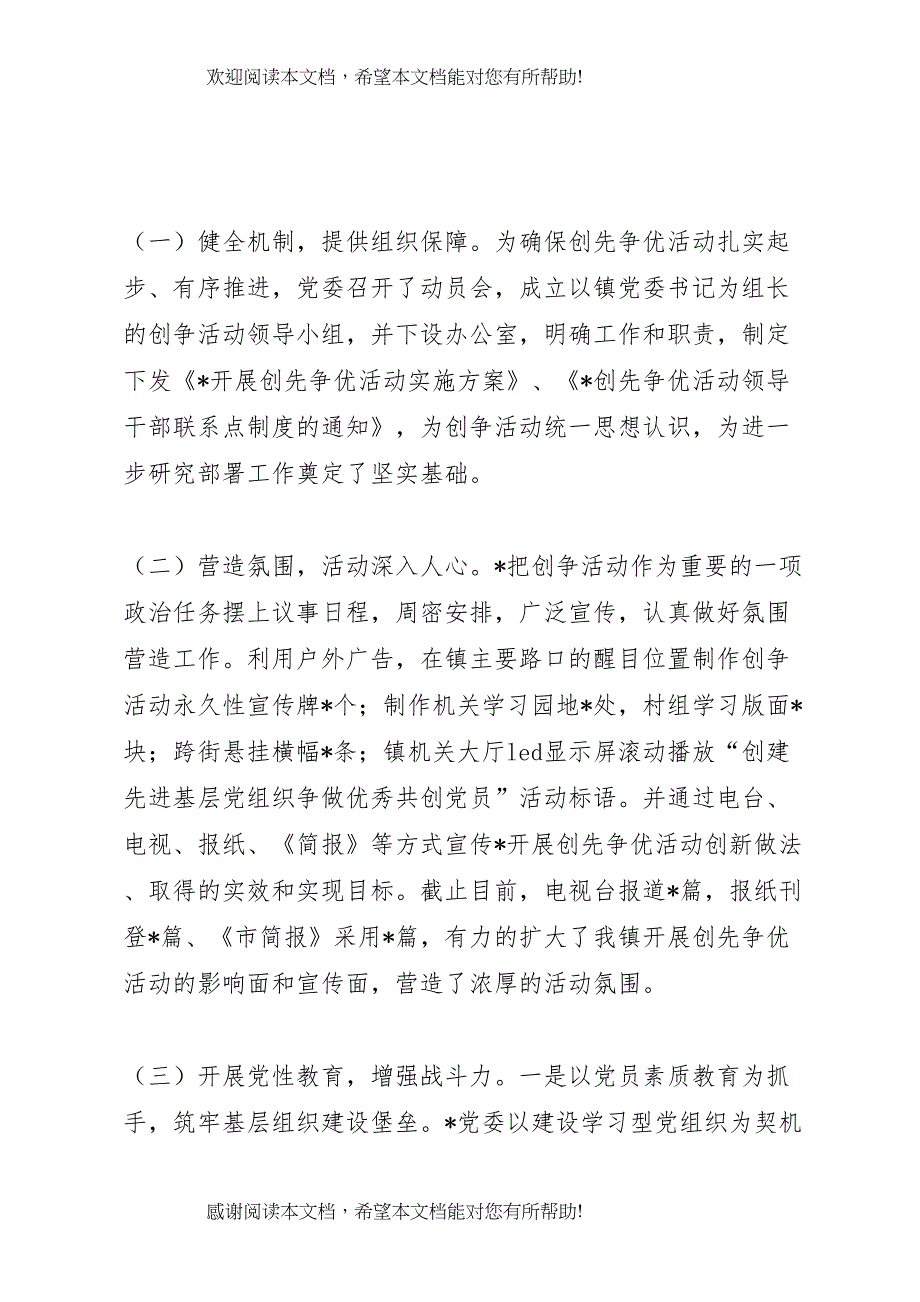 欢迎阅读本文档，希望本文档能对您有所帮助!
（一）健全机制，提供组织保障。为确保创先争优活动扎实起
步、有序推进，党委召开了动员会，成立以镇党委书记为组长
的创争活动领导小组，并下设办公室，明确工作和职责，制定
下发《*开展创先争优活动实施方案》、《*创先争优活动领导
干部联系点制度的通知》，为创争活动统一思想认识，为进一
步研究部署工作奠定了坚实基础。
（二）营造氛围，活动深入人心。*把创争活动作为重要的一项
政治任务摆上议事日程，周密安排，广泛宣传，认真做好氛围
营造工作。利用户外广告，在镇主要路口的醒目位置制作创争
活动永久性宣传牌*个；制作机关学习园地*处，村组学习版面*
块；跨街悬挂横幅*条；镇机关大厅led显示屏滚动播放“创建
先进基层党组织争做优秀共创党员”活动标语。并通过电台、
电视、报纸、《简报》等方式宣传*开展创先争优活动创新做法
、取得的实效和实现目标。截止目前，电视台报道*篇，报纸刊
登*篇、《市简报》采用*篇，有力的扩大了我镇开展创先争优
活动的影响面和宣传面，营造了浓厚的活动氛围。
（三）开展党性教育，增强战斗力。一是以党员素质教育为抓
手，筑牢基层组织建设堡垒。*党委以建设学习型党组织为契机
感谢阅读本文档，希望本文档能对您有所帮助!